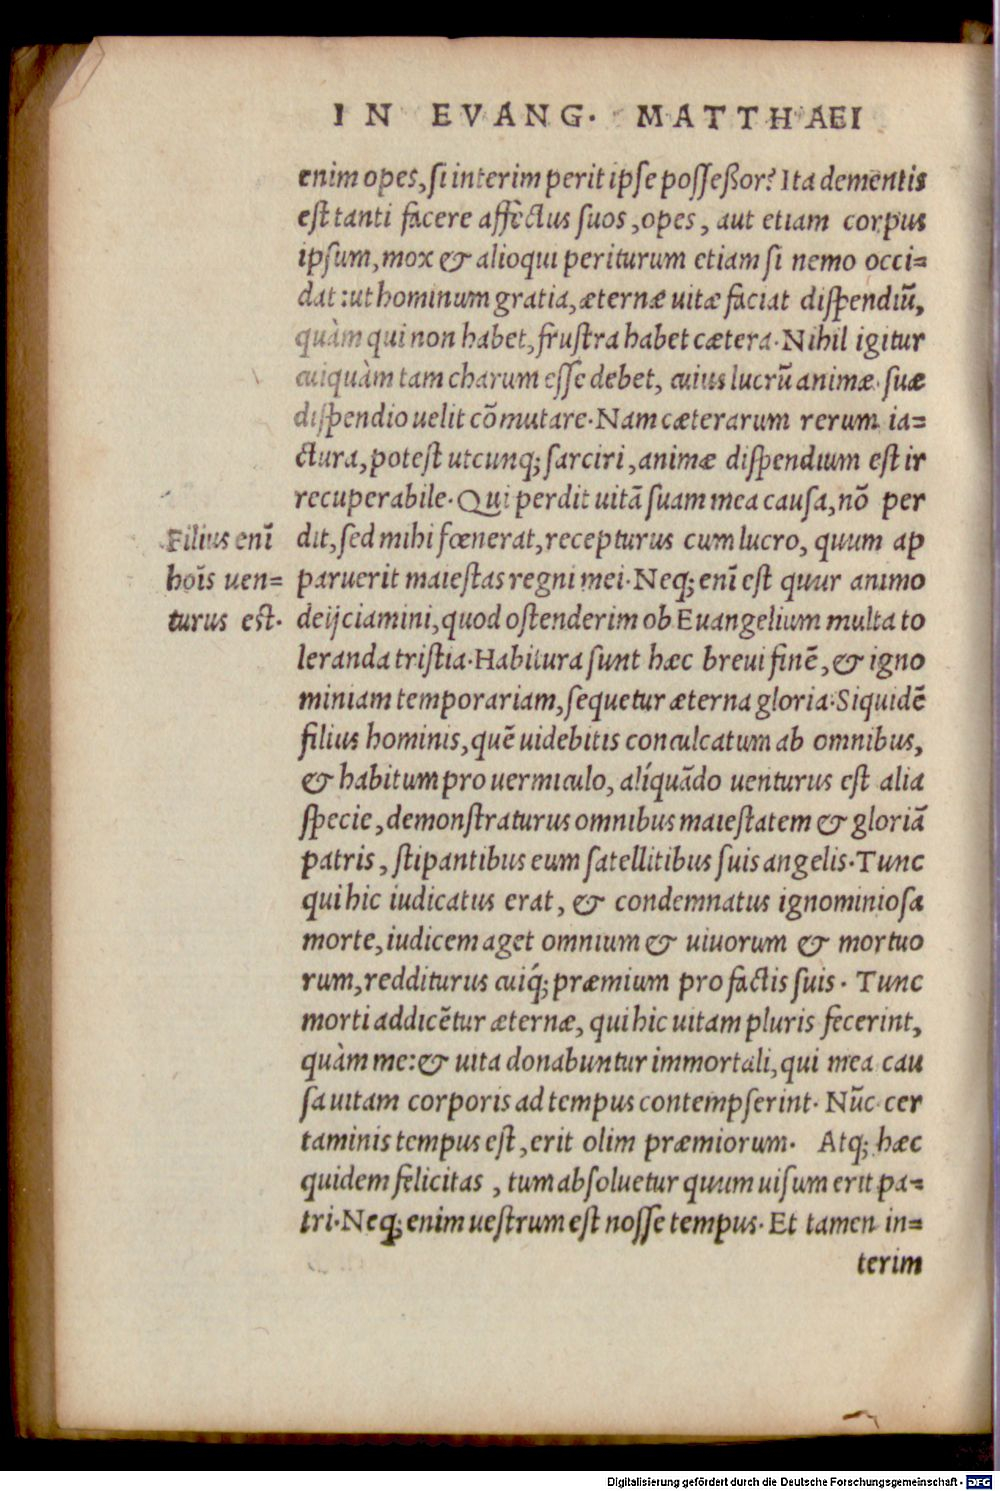 IN EVANG. MATTHAEI
enim opes, si interim perit ipse possessor? Ita dementis
est tanti facere affectus suos, opes, aut etiam corpus
ipsum, mox & alioqui periturum etiam si nemo occi=
dat: ut hominum gratia, æternæ uitæ faciat dispendiũ,
quàm qui non habet, frustra habet cætera. Nihil igitur
cuiquàm tam charum esse debet, cuius lucrũ animæ suæ
dispendio uelit cõmutare. Nam cæterarum rerum ia=
ctura, potest utcunq; sarciri, animæ dispendium est ir
recuperabile. Qui perdit uitã suam mea causa, nõ per
dit, sed mihi fœnerat, recepturus cum lucro, quum ap
paruerit maiestas regni mei. Neq; enĩ est quur animo
deijciamini, quod ostenderim ob Euangelium multa to
leranda tristia. Habitura sunt hæc breui finẽ, & igno
miniam temporariam, sequetur æterna gloria. Siquidẽ
filius hominis, quẽ uidebitis conculcatum ab omnibus,
& habitum pro uermiculo, alíquãdo uenturus est alia
specie, demonstraturus omnibus maiestatem & gloriã
patris, stipantibus eum satellitibus suis angelis. Tunc
qui hic iudicatus erat, & condemnatus ignominiosa
morte, iudicem aget omnium & uiuorum & mortuo
rum, redditurus cuiq́; præmium pro factis suis. Tunc
morti addicẽtur æternæ, qui hic uitam pluris fecerint,
quàm me: & uita donabuntur immortali, qui mea cau
sa uitam corporis ad tempus contempserint. Nũc cer
taminis tempus est, erit olim præmiorum. Atq; hæc
quidem felicitas, tum absoluetur quum uisum erit pa=
tri. Neq; enim uestrum est nosse tempus. Et tamen in=
terim
Filius enĩ
hoĩs uen=
turus est.
Digitalisierung gefördert durch die Deutsche Forschungsgemeinschaft - DFG